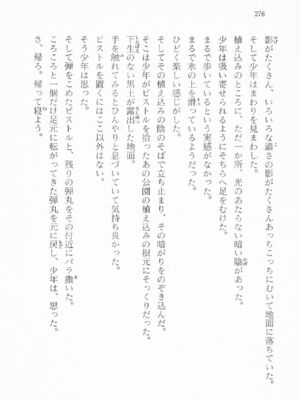 276
影がたくさん、いろいろな濃さの影がたくさんあっちこっちにむいて地面に落ちていた。
そして少年はまわりを見まわした。
植え込みのところに、ただ一か所、光のあたらない暗い陰があった。
少年は吸い寄せられるようにそちらへ足をむけた。
歩いているという実感がなかった。
まるで氷の上を滑っているようだった。
ひどく楽しい感じがした。
そしてその植え込みの陰のそばで立ち止まり、その暗がりをのぞき込んだ。
そこは少年がピストルを拾ったあの公園の植え込みの根元にそっくりだった。
下生のない黒土が露出した地面。
手を触れてみるとひんやりと息づいていて気持ち良かった。
ピストルを置くにはここ以外はない。
そう少年は思った。
そして弾をこめたピストルと、残りの弾丸をその付近にバラ撒いた。
ころころと一個だけ足元に転がってきた弾丸を元に戻し、少年は、思った。
さ、帰ろう。帰って寝よう。